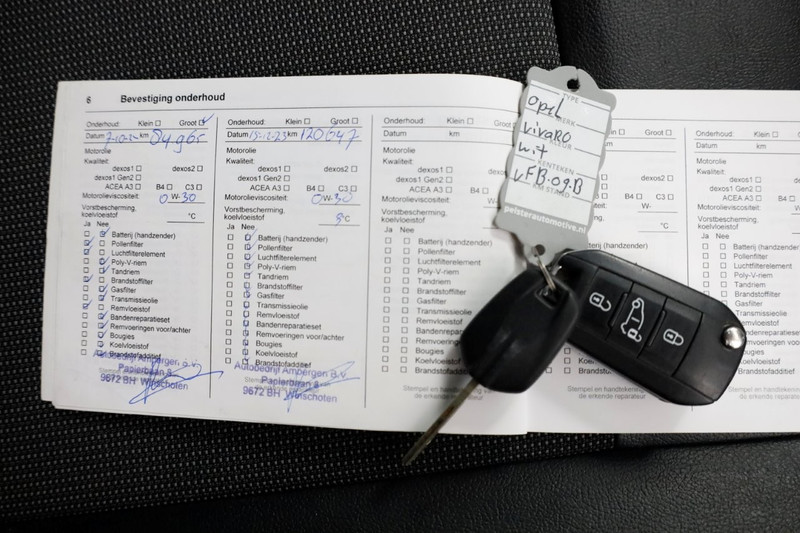 6 Bevestiging onderhoud
Onderhoud: Klein ☐ Groot ☑
Datum km 84965
Motorolie
Kwaliteit:
dexos1 ☐ dexos2 ☐
dexos1 Gen2 ☐
ACEA A3 ☐ B4 ☐ C3 ☐
Motorolieviscositeit: 0 W- 30
Vorstbescherming.
koelvloeistof °C
Ja Nee
Batterij (handzender)
Pollenfilter
Luchtfilterelement
Poly-V-riem
Tandriem
Brandstoffilter
Gasfilter
Transmissieolie
Remvloeistof
Bandenreparatieset
Remvoeringen voor/achter
Bougies
Koelvloeistof
Brandstofadditief
Autobedrijf Ampergen, b.v.
Papierbaan 8
9672 BH Winschoten
Onderhoud: Klein ☐ Groot ☐
Datum 15-12-23 km 120647
Motorolie
Kwaliteit:
dexos1 ☐ dexos2 ☐
dexos1 Gen2 ☐
ACEA A3 ☐ B4 ☐ C3 ☐
Motorolieviscositeit: 0 W- 30
Vorstbescherming.
koelvloeistof °C
Ja Nee
Batterij (handzender)
Pollenfilter
Luchtfilterelement
Poly-V-riem
Tandriem
Brandstoffilter
Gasfilter
Transmissieolie
Remvloeistof
Bandenreparatieset
Remvoeringen voor/achter
Bougies
Koelvloeistof
Brandstofadditief
Autobedrijf Ampergen b.v.
Papierbaan 8
9672 BH Winschoten
Onderhoud: Klein ☐ Groot ☐
Datum km
Motorolie
Kwaliteit:
dexos1 ☐
dexos1 Gen2 ☐
ACEA A3 ☐ B4 ☐
Motorolieviscositeit:
Vorstbescherming.
koelvloeistof
Ja Nee
Batterij (handzender)
Pollenfilter
Luchtfilterelement
Poly-V-riem
Tandriem
Brandstoffilter
Gasfilter
Transmissieolie
Remvloeistof
Bandenreparatieset
Remvoeringen
Bougies
Koelvloeistof
Brandstofadditief
Stempel en handtekening
de erkende reparateur
TYPE
Opel
MERK
ViVaRO
KLEUR
wit
KENTEKEN
VFB.09.B
KM STAND
pelsterautomotive.nl
Groot ☐
km
dexos2 ☐
C3 ☐
W-
°C
Stempel en handtekening
de erkende reparateur
Onderhoud: Klein ☐
Datum km
Motorolie
Kwaliteit:
dexos1 ☐
dexos1 Gen2 ☐
ACEA A3 ☐
Motorolieviscositeit:
Vorstbescherming.
koelvloeistof
Ja Nee
Batterij (handzender)
Pollenfilter
Luchtfilterelement
Poly-V-riem
Tandriem
Brandstoffilter
Gasfilter
Transmissieolie
Remvloeistof